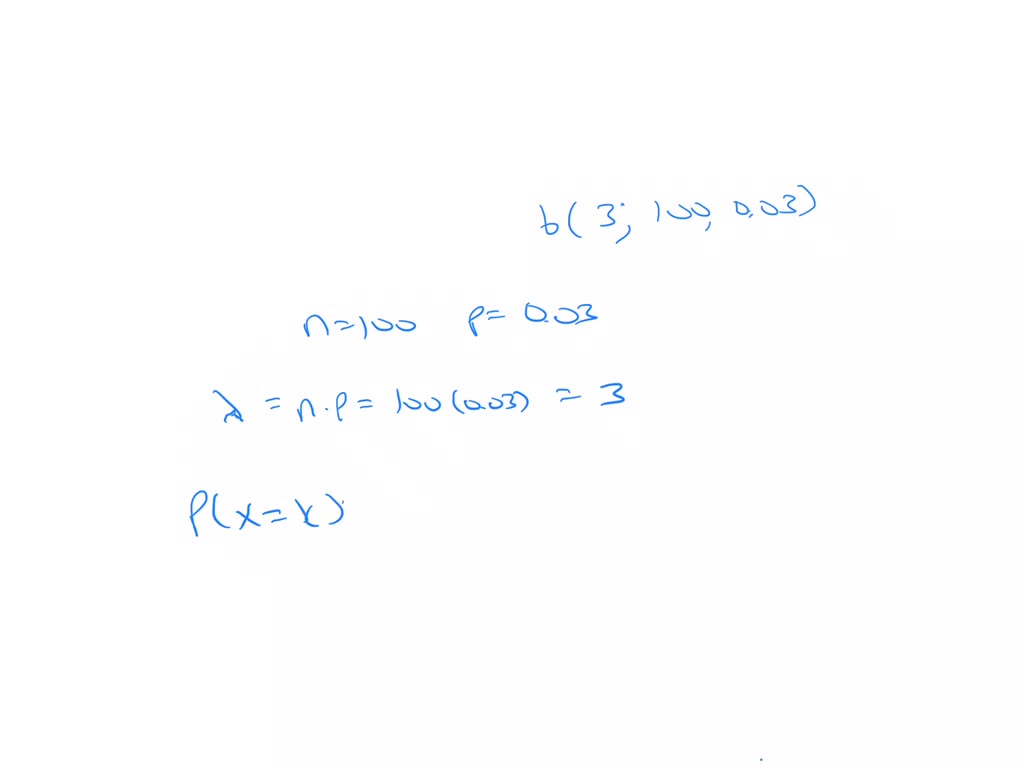 b(3; 100, 0.03)
n=100 p= 0.03
λ = n.p = 100(0.03) = 3
P(x=x)